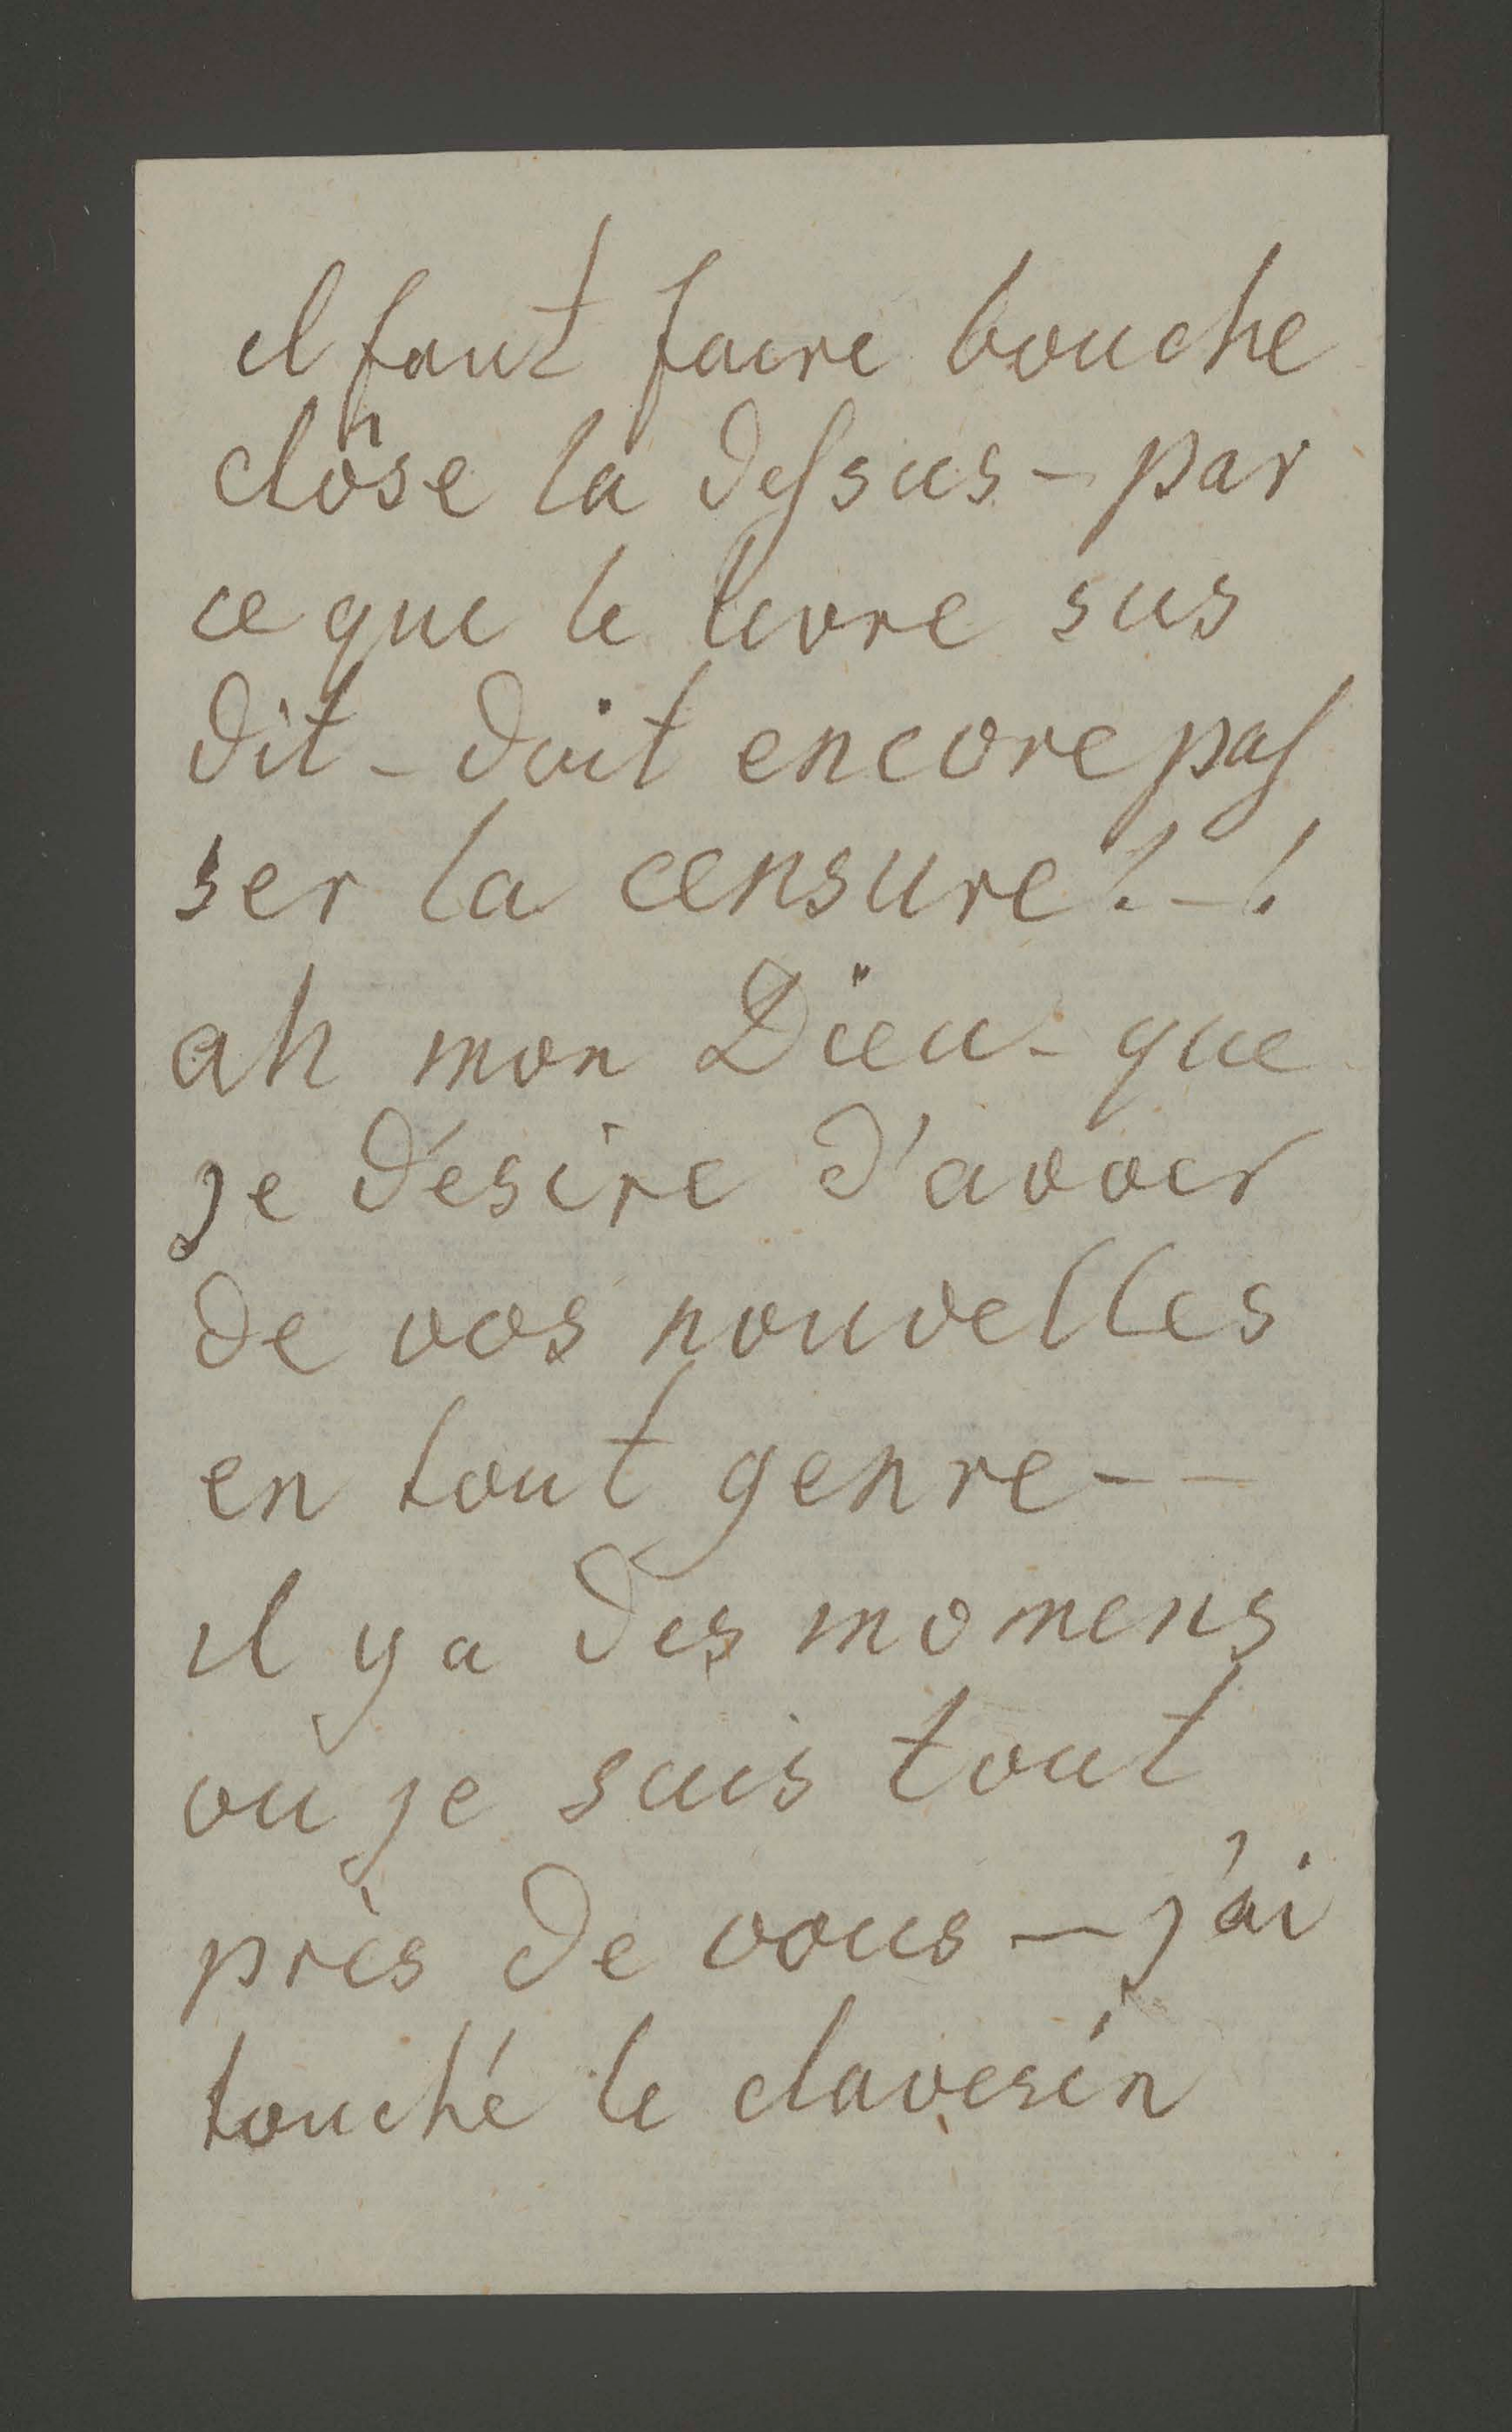 il faut faire bouche
clôse la deſsus - par
ce que le livre sus
dit - doit encore paſ
ser la censure! - !
ah mon Dïeu - que
je désire d'avoir
de vos nouvelles
en tout genre - -
il y a des momens
ou je suis tout
près de vous - j'ai
touché le clavesin